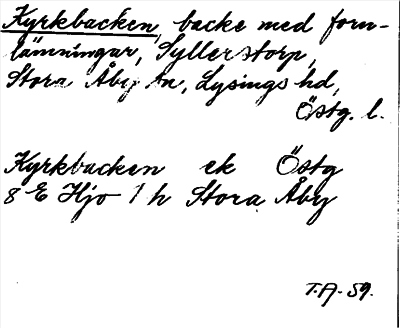 Kyrkbacken, backe med forn-
lämningar, Syllerstorp,
Stora Åby sn, Lysings hd,
Östg. l.
Kyrkbacken ek Östg
8 E Hjo 1 h Stora Åby
T.A. 59.